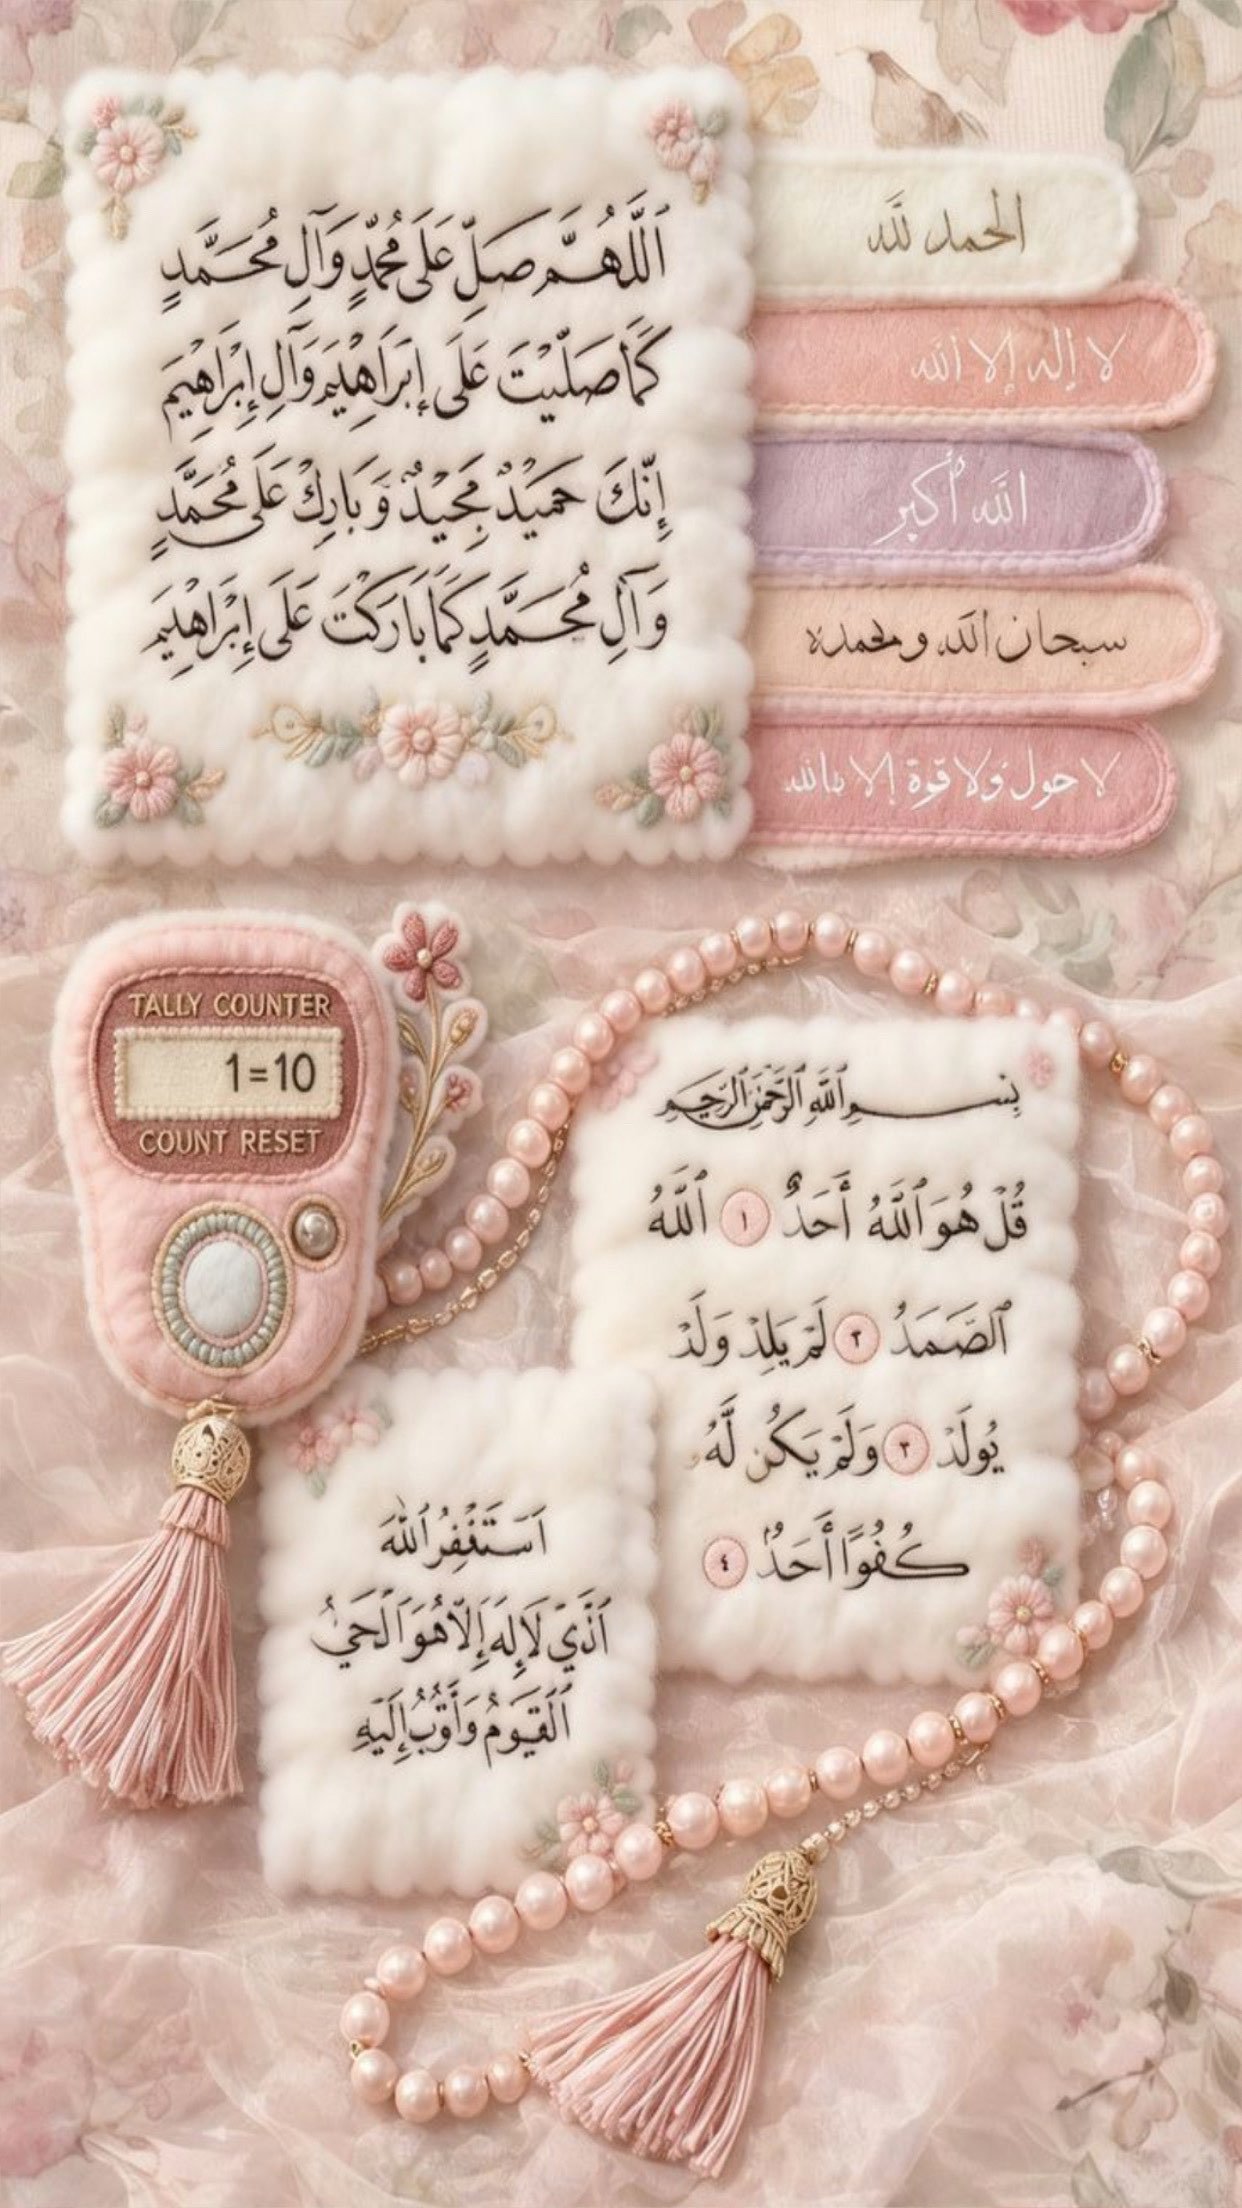 اَللّٰهُمَّ صَلِّ عَلَى مُحَمَّدٍ وَآلِ مُحَمَّدٍ
كَمَا صَلَّيْتَ عَلَى إِبْرَاهِيْمَ وَآلِ إِبْرَاهِيْمَ
إِنَّكَ حَمِيْدٌ مَجِيْدٌ وَبَارِكْ عَلَى مُحَمَّدٍ
وَآلِ مُحَمَّدٍ كَمَا بَارَكْتَ عَلَى إِبْرَاهِيْمَ
الحمد لله
لا إله إلا الله
الله أكبر
سبحان الله
لا حول ولا قوة إلا بالله
TALLY COUNTER
1=10
COUNT RESET
بِسْمِ ٱللَّهِ ٱلرَّحْمَٰنِ ٱلرَّحِيمِ
قُلْ هُوَ ٱللَّهُ أَحَدٌ ١ ٱللَّهُ
ٱلصَّمَدُ ٢ لَمْ يَلِدْ وَلَمْ
يُولَدْ ٣ وَلَمْ يَكُن لَّهُ
كُفُوًا أَحَدٌ ٤
اَسْتَغْفِرُ اللهَ
الَّذِيْ لَا إِلَهَ إِلَّا هُوَ الْحَيُّ
الْقَيُّومُ وَأَتُوبُ إِلَيْهِ